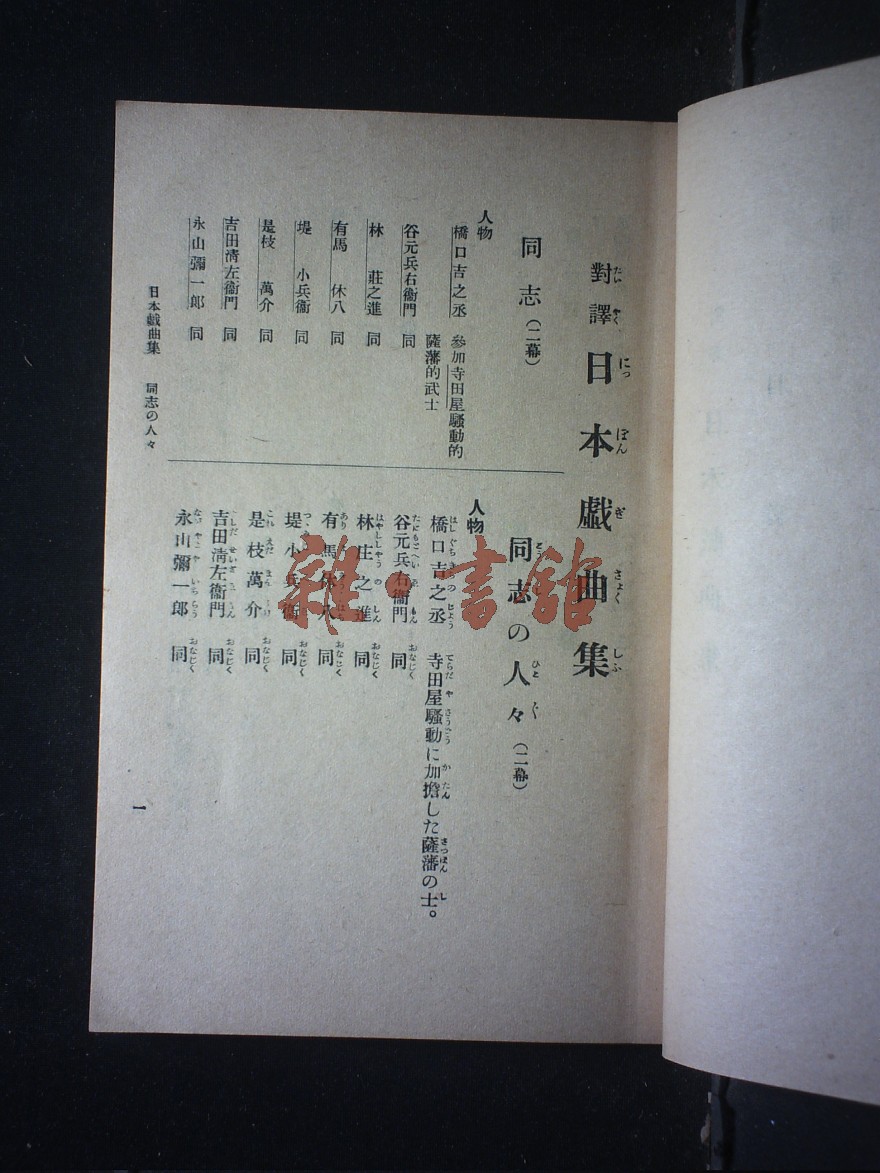 對譯 日本戲曲集
同志(二幕)
人物
橋口吉之丞 參加寺田屋騷動的
薩藩的武士
谷元兵右衞門 同
林 莊之進 同
有馬 休八 同
堤 小兵衞 同
是枝 萬介 同
吉田淸左衞門 同
永山彌一郎 同
同志の人々(二幕)
人物
橋口吉之丞 寺田屋騷動に加擔した薩藩の士。
谷元兵右衞門 同
林庄之進 同
有馬休八 同
堤小兵衞 同
是枝萬介 同
吉田淸左衞門 同
永山彌一郎 同
日本戲曲集 同志の人々
一
雜·書館